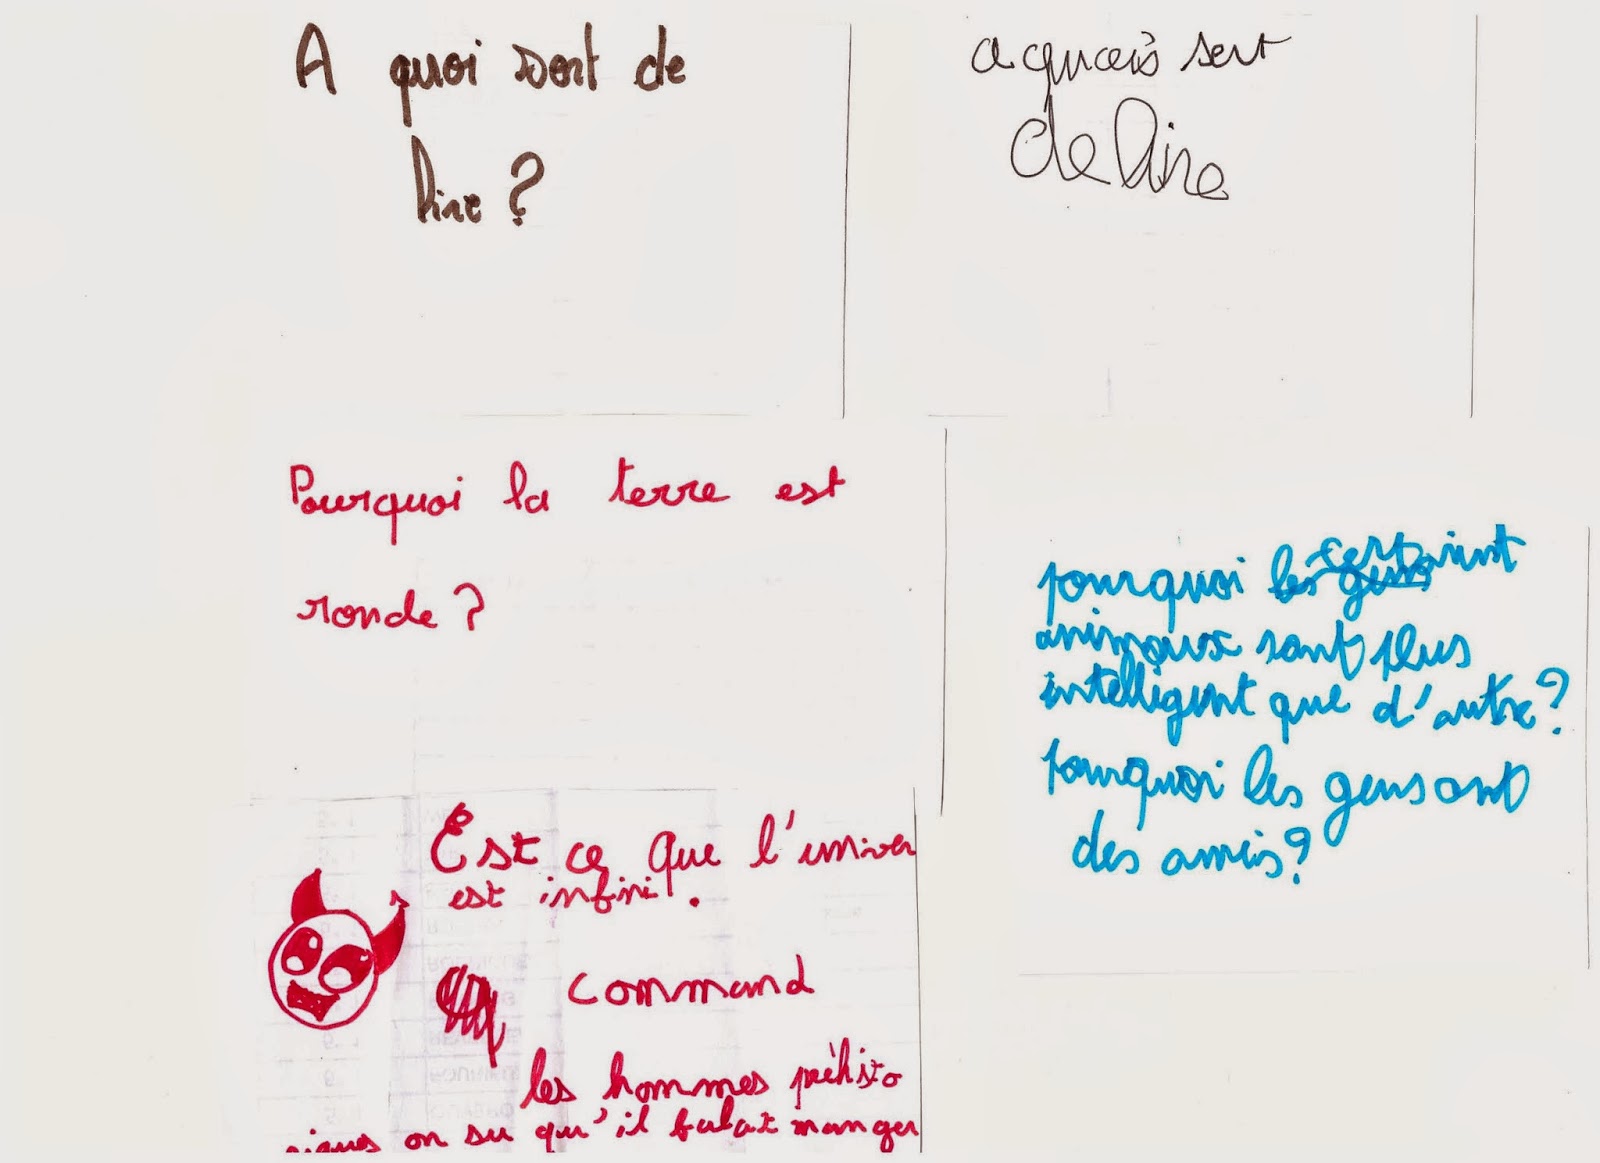 A quoi sert de
lire ?
a quois sert
de lire
Pourquoi la terre est
ronde ?
pourquoi les certaint
animaux sont plus
intelligent que d'autre ?
pourquoi les gens ont
des amis ?
Est ce que l'univer
est infini .
command
les hommes préhisto
riques on su qu'il falait manger